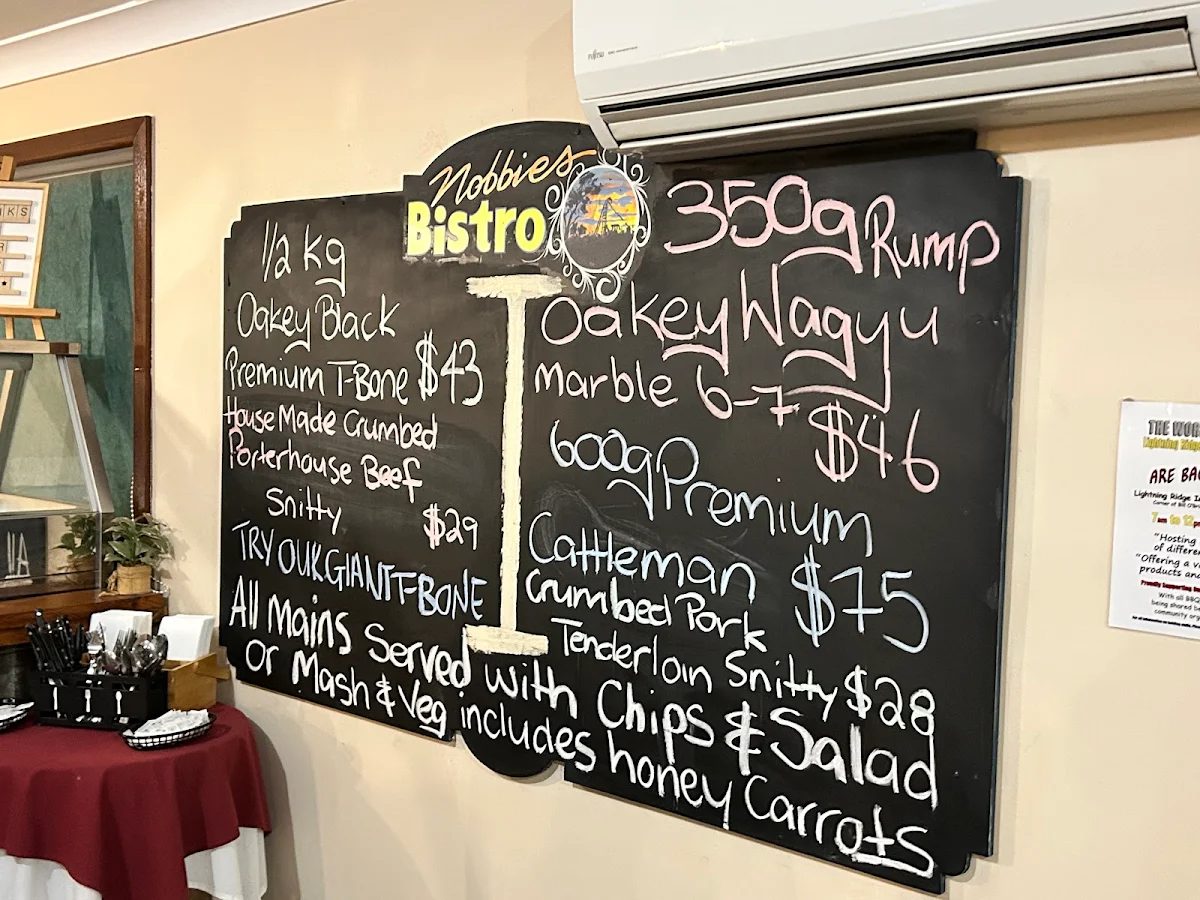 FUJITSU
Nobbies
Bistro
1/2 kg
Oakey Black
Premium T-Bone $43
House Made Crumbed
Porterhouse Beef
Snitty $29
TRY OUR GIANT T-BONE
350g Rump
Oakey Wagyu
Marble 6-7
$46
600g Premium
Cattleman $75
Crumbed Pork
Tenderloin Snitty $28
All Mains Served with Chips & Salad
or Mash & Veg includes honey Carrots
THE WOR
Lightning Ridge
ARE BA
Lightning Ridge I
7am to 12p
"Hosting
of differe
"Offering a v
products an
Proudly Supporting
With all BBQ
being shared
community or